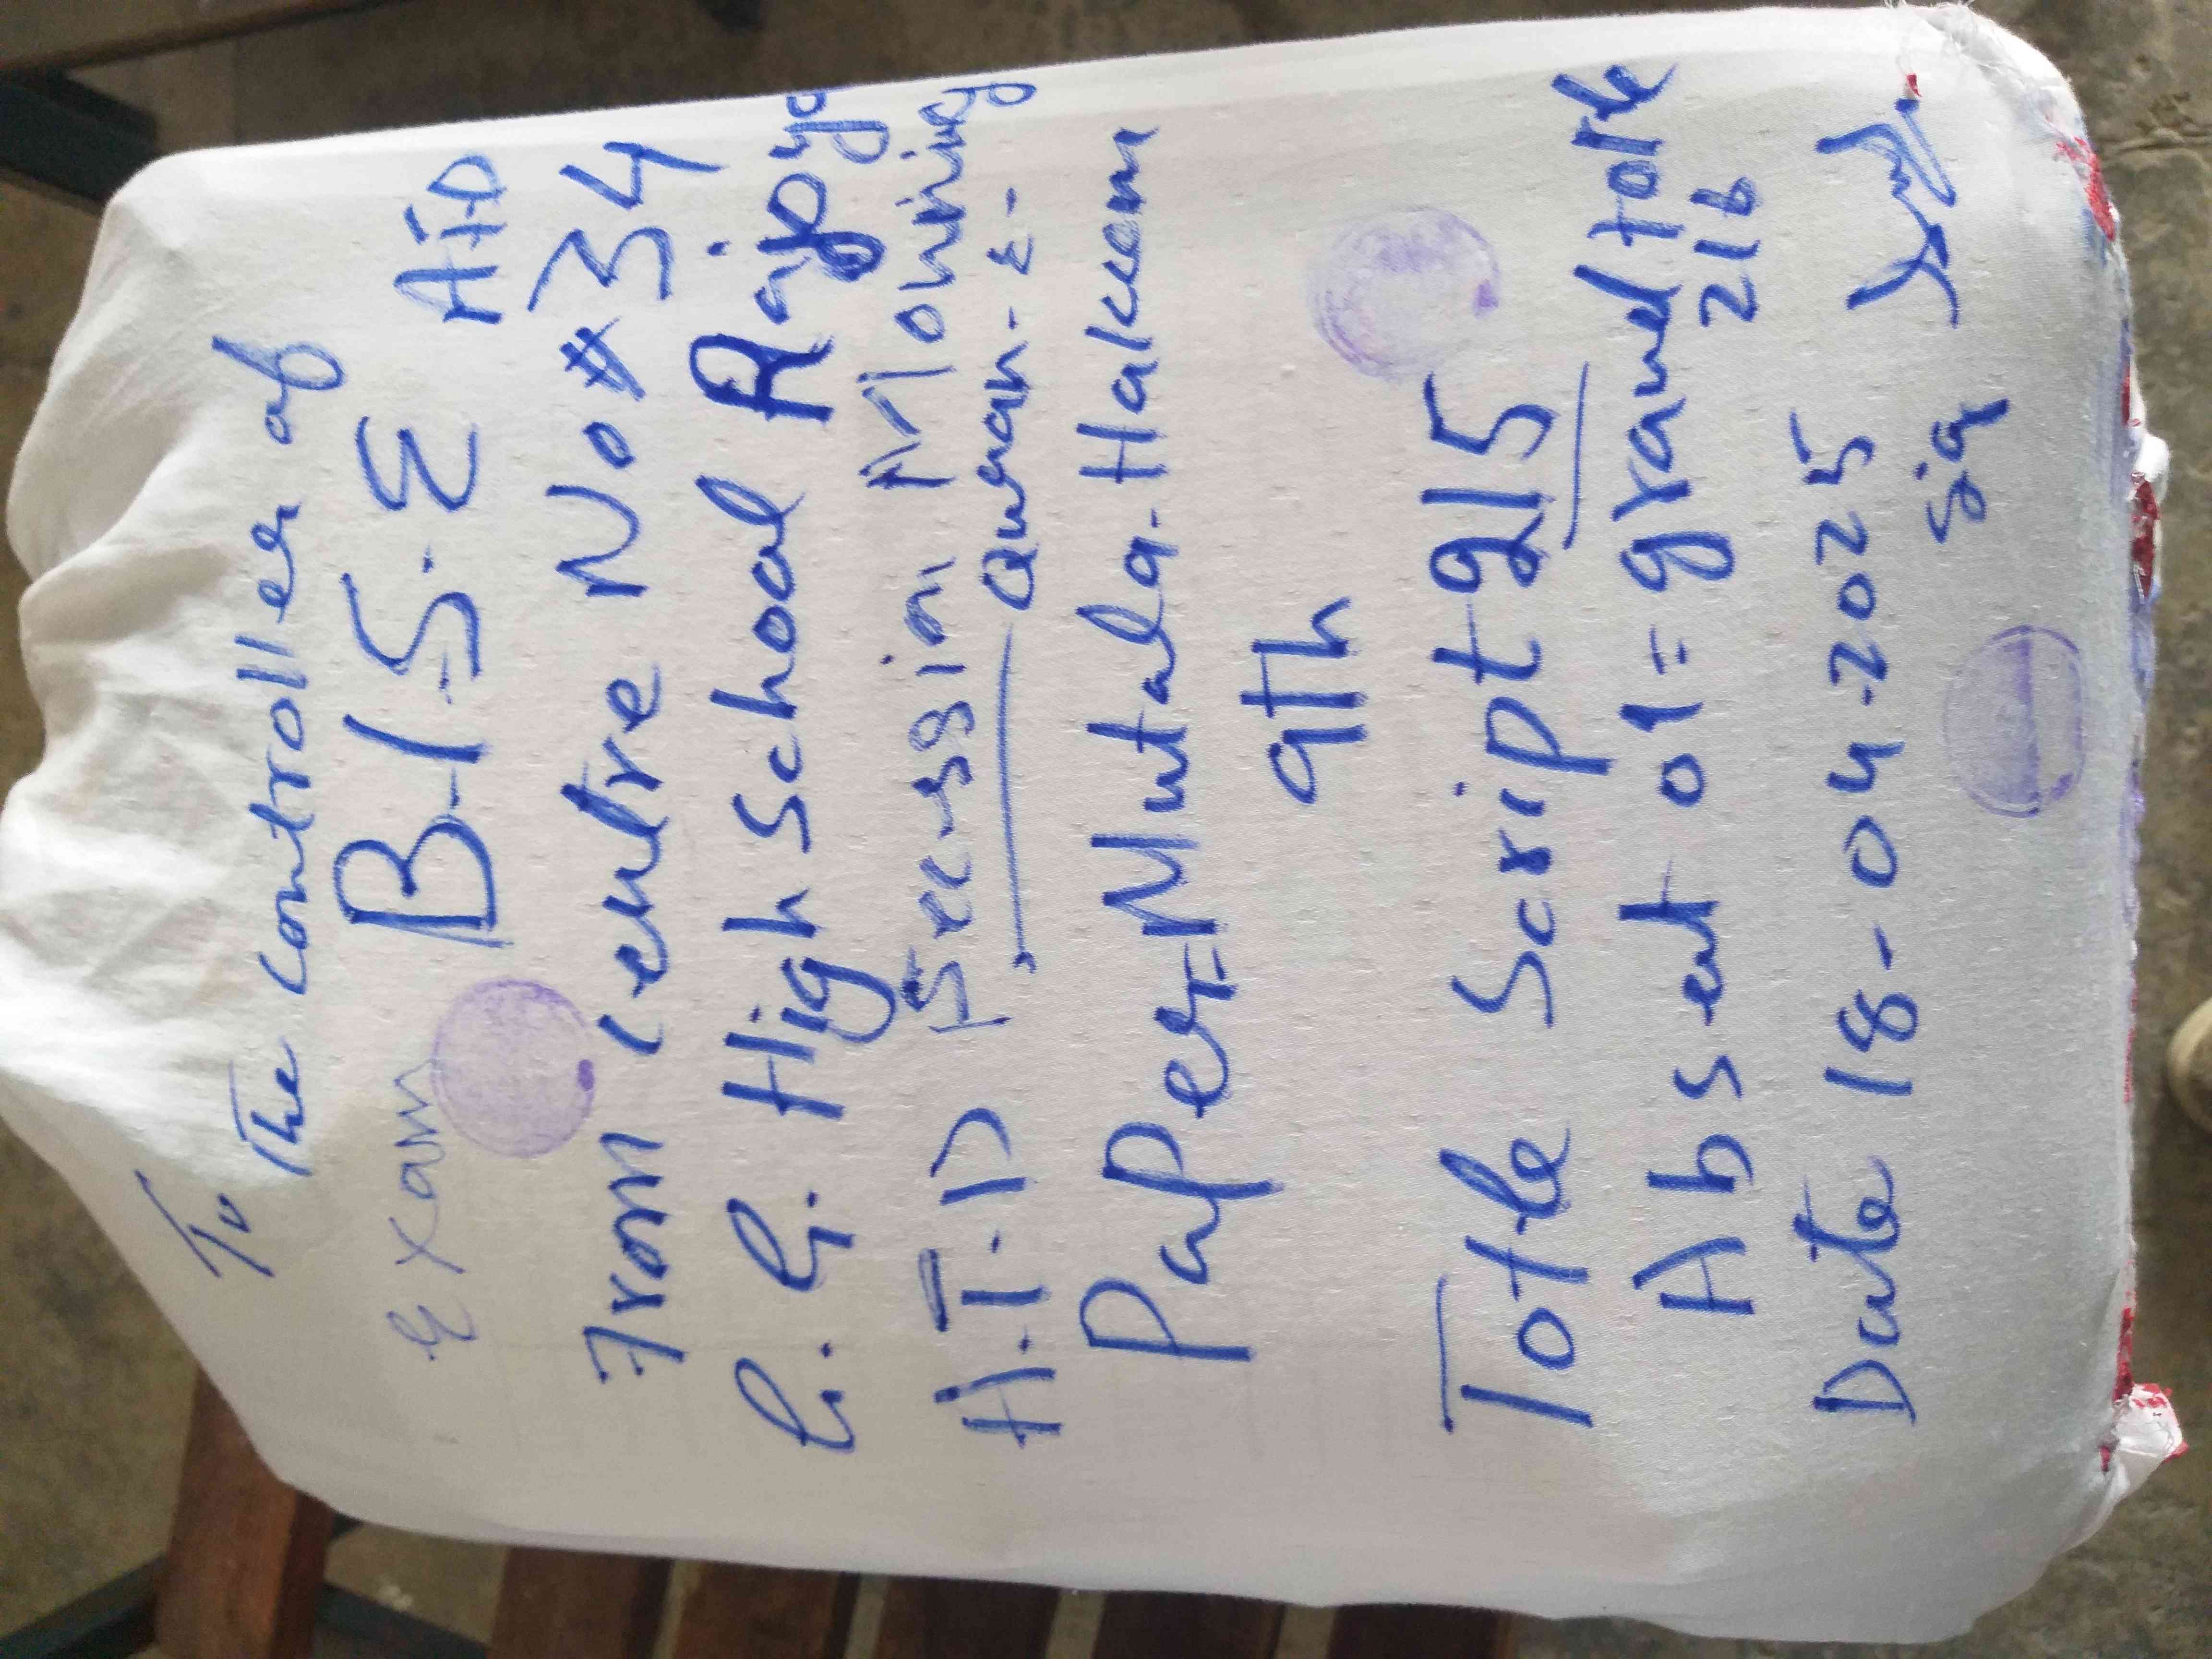 To
The Controller of
Exam B-I-S-E A.T.D
From Centre No # 34
G. G. High School Rajoya
A.T.D Sec-ssion Morning
Quran-E-
Paper=Mutala-Hakeem
9th
Totle Script 215
Absent 01 = grand totle
216
Date 18-04-2025
Sig